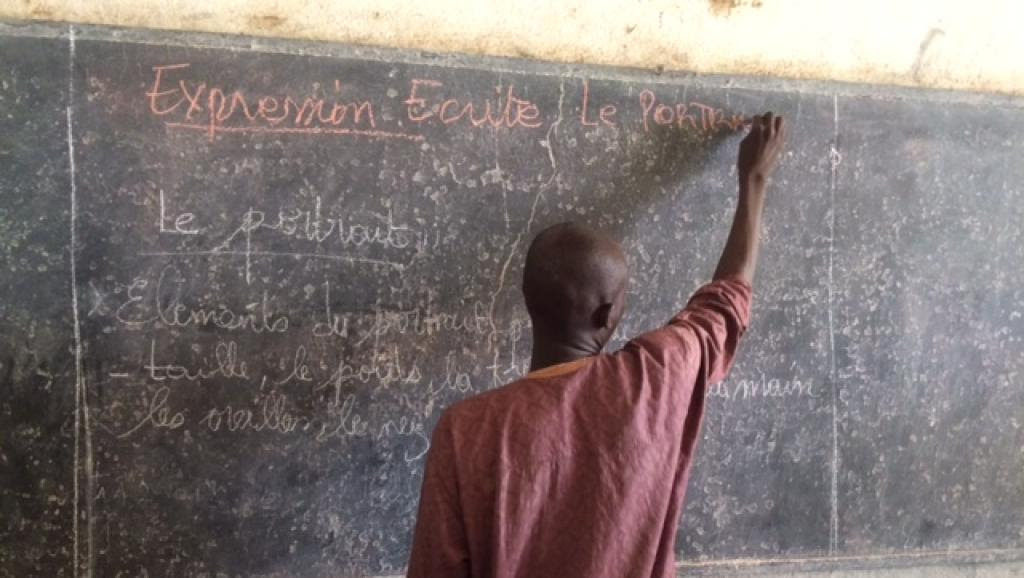 Expression Ecrite Le PORTRA
Le portrait
x Elements du portrait p
- taille, le poids, la t main
les oreilles, le nez